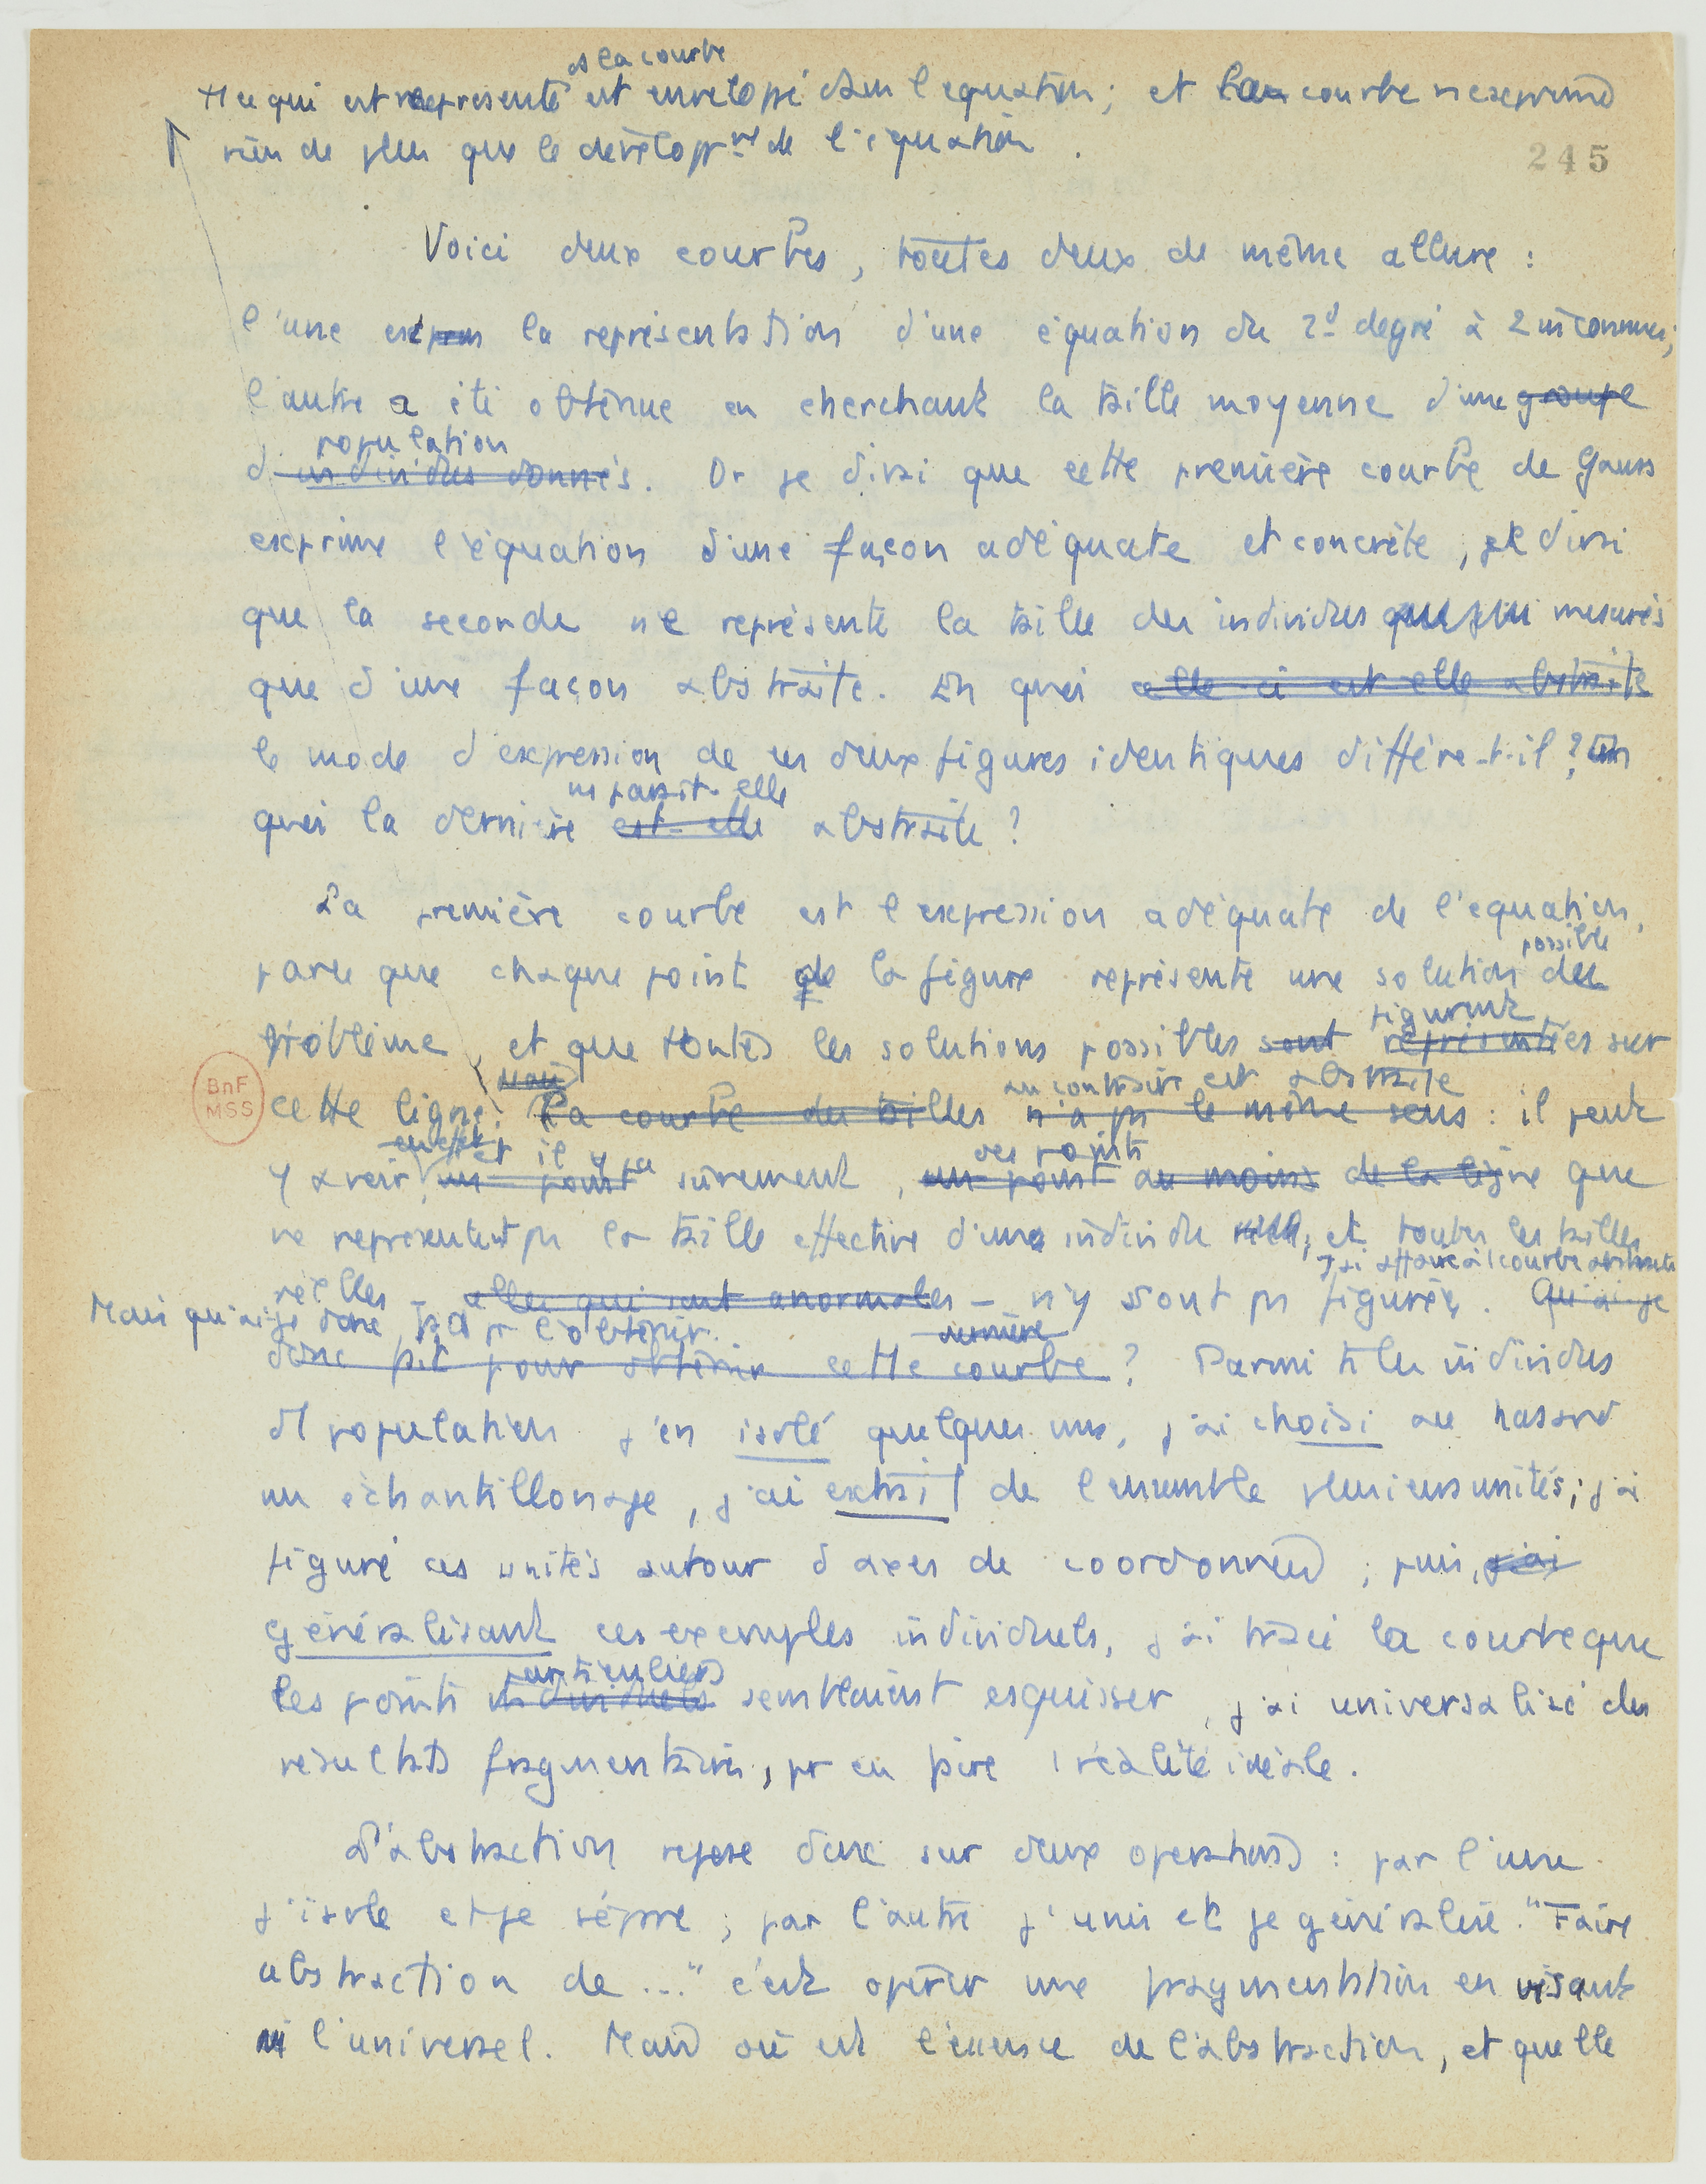 ds la courbe
tt ce qui est représenté est enveloppé dans l'équation ; et la courbe n'exprime
rien de plus que le développt de l'équation.
245
Voici deux courbes, toutes deux de même allure :
l'une est la représentation d'une équation du 2d degré à 2 inconnues ;
l'autre a été obtenue en cherchant la taille moyenne d'une groupe
population
d'individus donnés. Or je dirai que cette première courbe de Gauss
exprime l'équation d'une façon adéquate et concrète, je dirai
que la seconde ne représente la taille des individus mesurés
que d'une façon abstraite. En quoi celle-ci est-elle abstraite
le mode d'expression de ces deux figures identiques diffère-t-il ? En
paraît-elle
quoi la dernière est-elle abstraite ?
La première courbe est l'expression adéquate de l'équation,
possible
parce que chaque point de la figure représente une solution du
figurent
problème, et que toutes les solutions possibles sont représentées sur
au contraire est abstraite
cette ligne. La courbe des tailles n'a pas le même sens : il peut
en effet et il y a des points
y avoir, un point sûrement, un point au moins de la ligne que
ne représentent pas la taille effective d'une individu réel, et toutes les tailles
J'ai affaire à 1 courbe abstraite
réelles - celles qui sont anormales - n'y sont pas figurées. Qu'ai-je
Mais qu'ai-je donc fait pr l'obtenir.
dernière
donc fait pour obtenir cette courbe ? Parmi ts les individus
d'1 population j'en isolé quelques uns, j'ai choisi au hasard
un échantillonage, j'ai extrait de l'ensemble plusieurs unités ; j'ai
figuré ces unités autour d'axes de coordonnées ; puis, j'ai
généralisant ces exemples individuels, j'ai tracé la courbe que
particuliers
les points individuels semblaient esquisser, j'ai universalisé des
résultats fragmentaires, pr en faire 1 réalité idéale.
L'abstraction repose donc sur deux opérations : par l'une
j'isole et je sépare ; par l'autre j'unis et je généralise. "Faire
abstraction de ..." c'est opérer une fragmentation en visant
l'universel. Mais où est l'essence de l'abstraction, et quelle
BnF
MSS